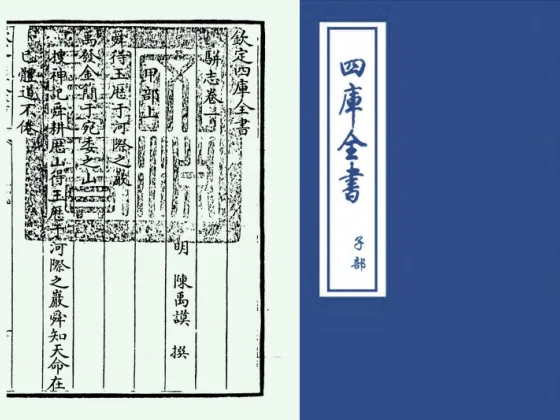 欽定四庫全書
駢志卷一
明 陳禹謨 撰
甲部上
舜得玉厯于河際之巖
禹發金簡于宛委之山
搜神記舜耕厯山得玉厯于河際之巖舜知天命在
已體道不倦
四庫全書
子部